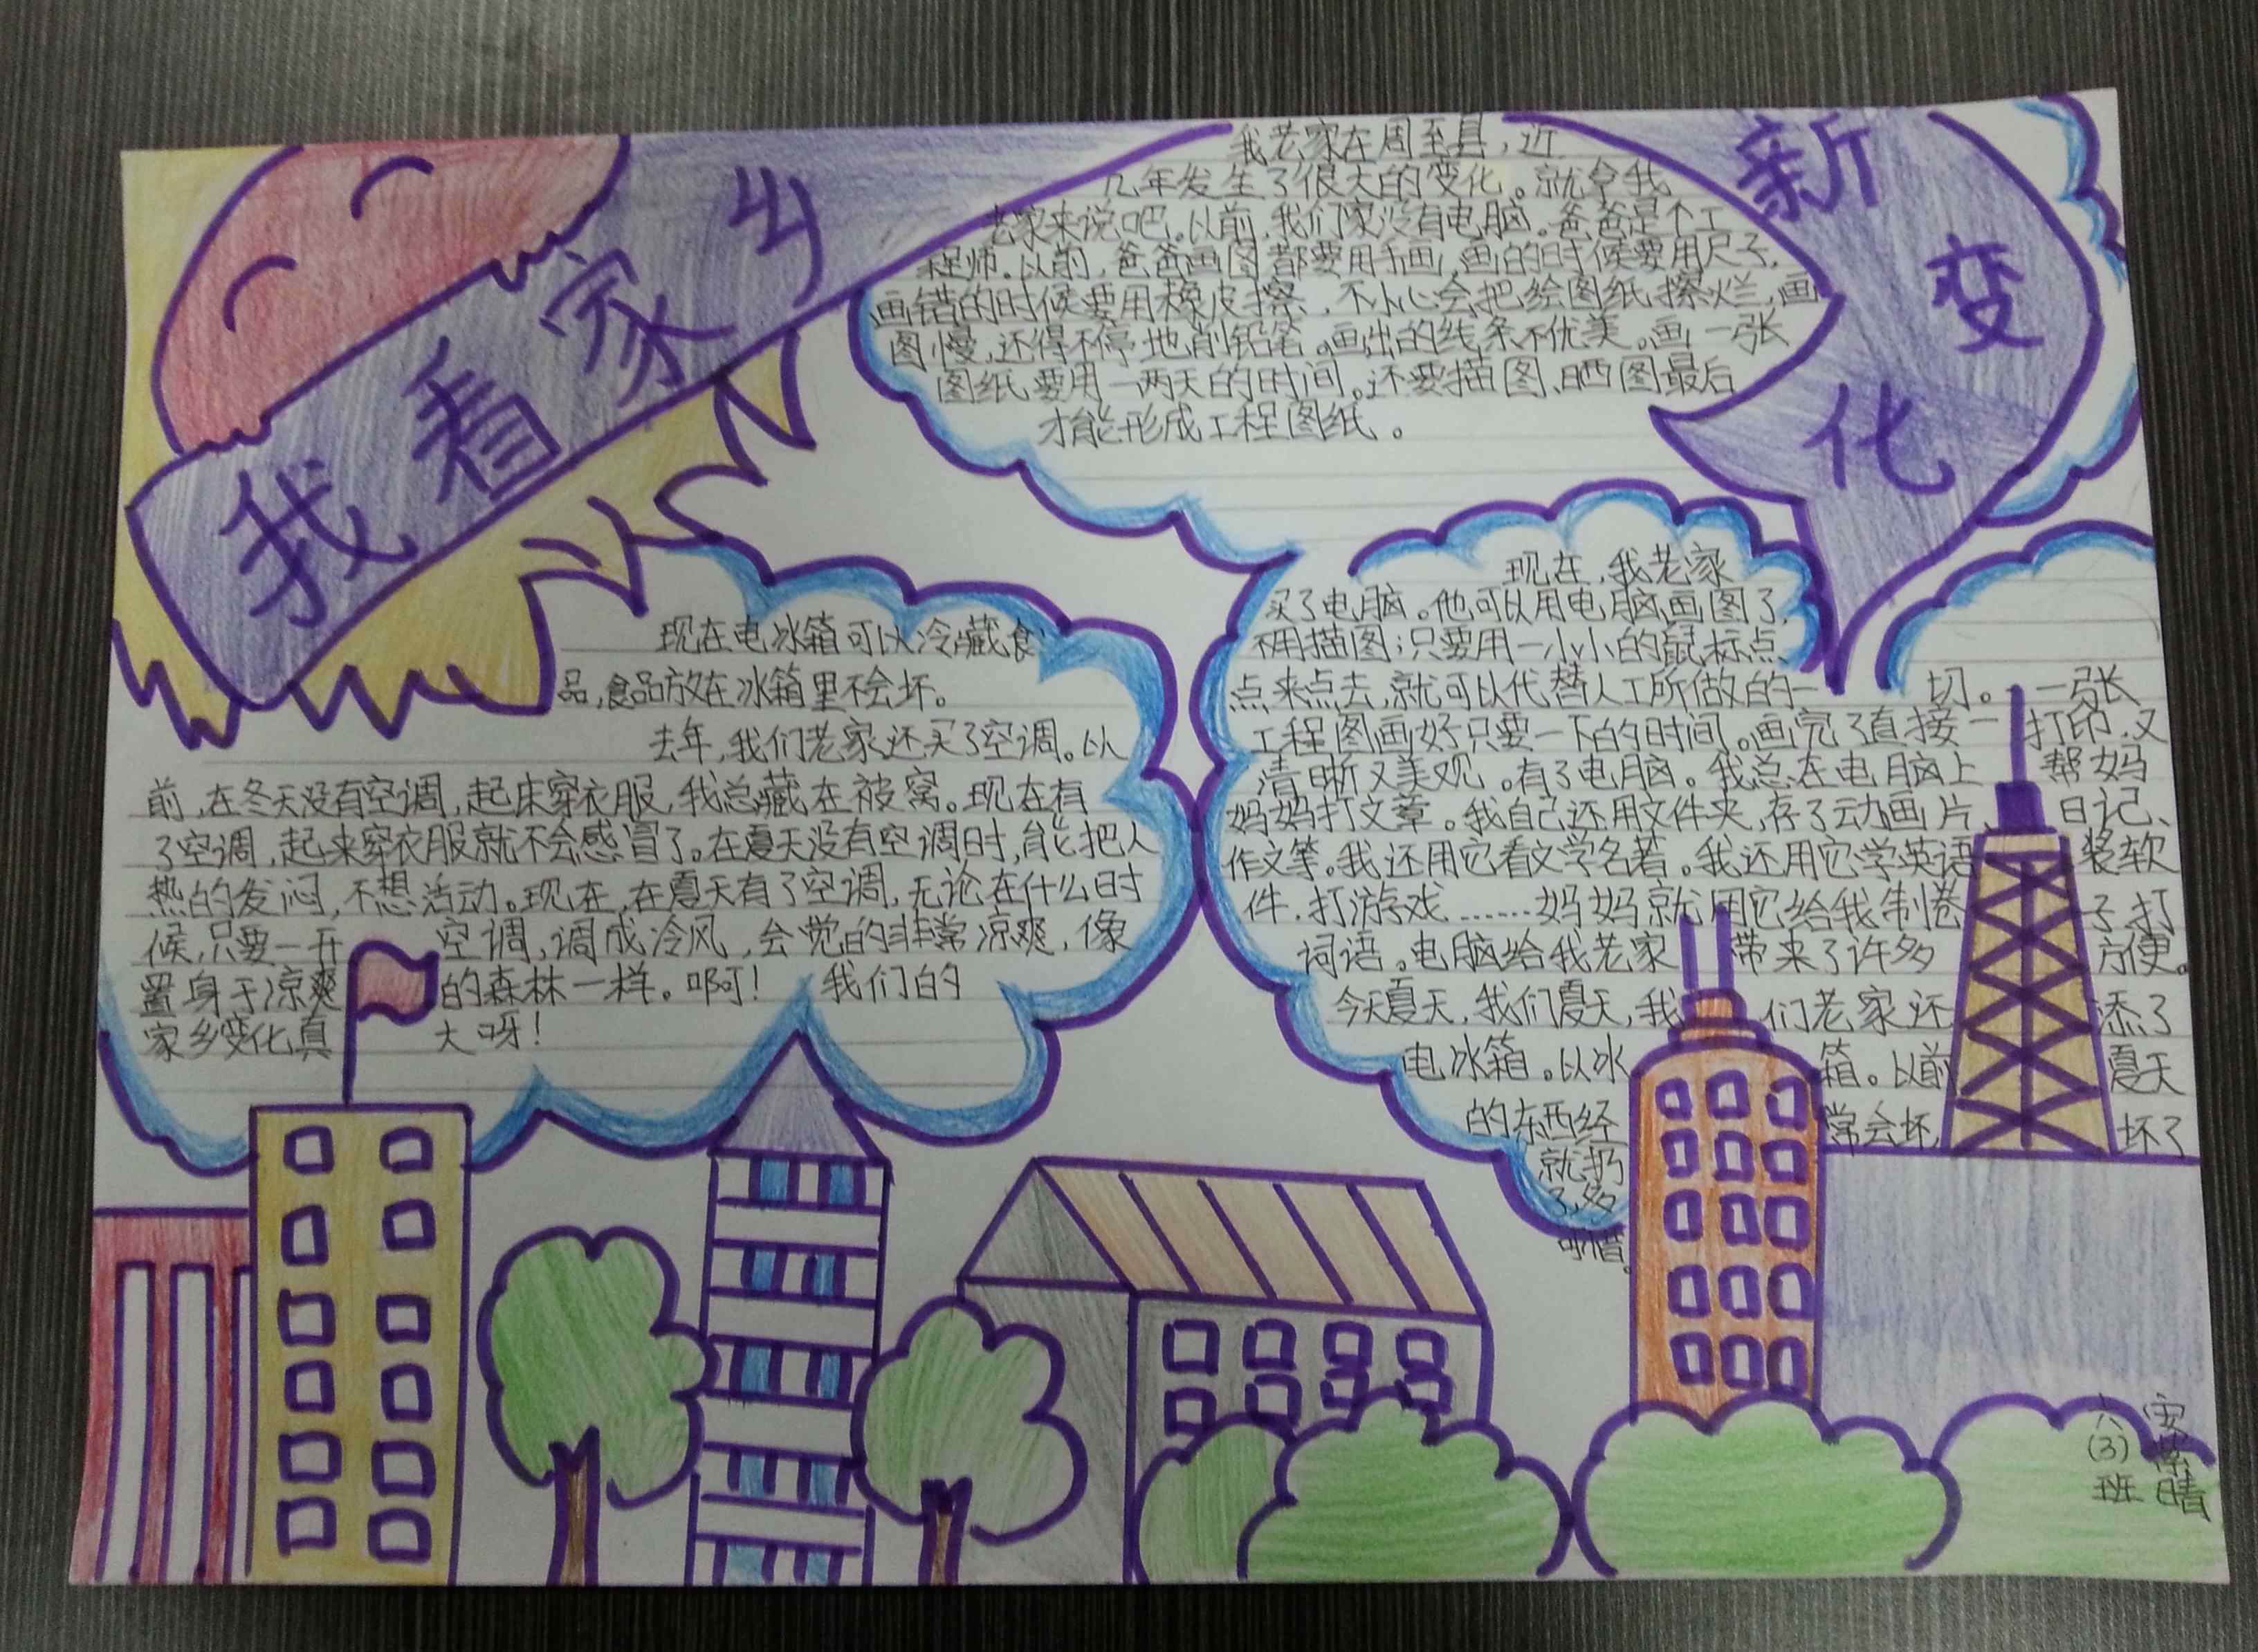 我看家乡
新变化
我老家在周至县，近
几年发生了很大的变化。就拿我
老家来说吧。以前，我们家没有电脑。爸爸是个工
程师。以前，爸爸画图都要用手画，画的时候要用尺子，
画错的时候要用橡皮擦，不小心会把绘图纸擦烂，画
图慢，还得不停地削铅笔。画出的线条不优美。画一张
图纸要用一两天的时间。还要描图、晒图最后
才能形成工程图纸。
现在，我老家
买了电脑。他可以用电脑画图了，
不用描图；只要用一小小的鼠标点
点来点去，就可以代替人工所做的一切。一张
工程图画好只要一下的时间。画完了直接一打印，又
清晰又美观。有了电脑。我总在电脑上帮妈
妈妈打文章。我自己还用文件夹，存了动画片、日记、
作文等。我还用它看文学名著。我还用它学英语装软
件，打游戏……妈妈就用它给我制卷子，打
词语。电脑给我老家带来了许多方便。
今天夏天，我们夏天，我们老家还添了
电冰箱。以冰箱。以前夏天
的东西经常会坏，坏了
就扔
了，多
可惜。
现在电冰箱可以冷藏食
品，食品放在冰箱里不会坏。
去年，我们老家还买了空调。以
前，在冬天没有空调，起床穿衣服，我总藏在被窝。现在有
了空调，起来穿衣服就不会感冒了。在夏天没有空调时，能把人
热的发闷，不想活动。现在，在夏天有了空调，无论在什么时
候，只要一开空调，调成冷风，会觉的非常凉爽，像
置身于凉爽的森林一样。啊！我们的
家乡变化真大呀！
六(3)班
安紫晴